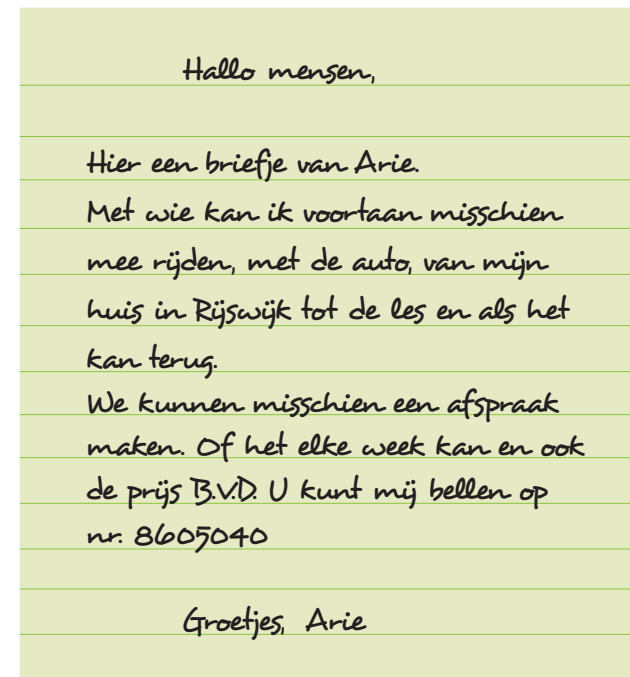 Hallo mensen,
Hier een briefje van Arie.
Met wie kan ik voortaan misschien
mee rijden, met de auto, van mijn
huis in Rijswijk tot de les en als het
kan terug.
We kunnen misschien een afspraak
maken. Of het elke week kan en ook
de prijs B.V.D. U kunt mij bellen op
nr. 8605040
Groetjes, Arie